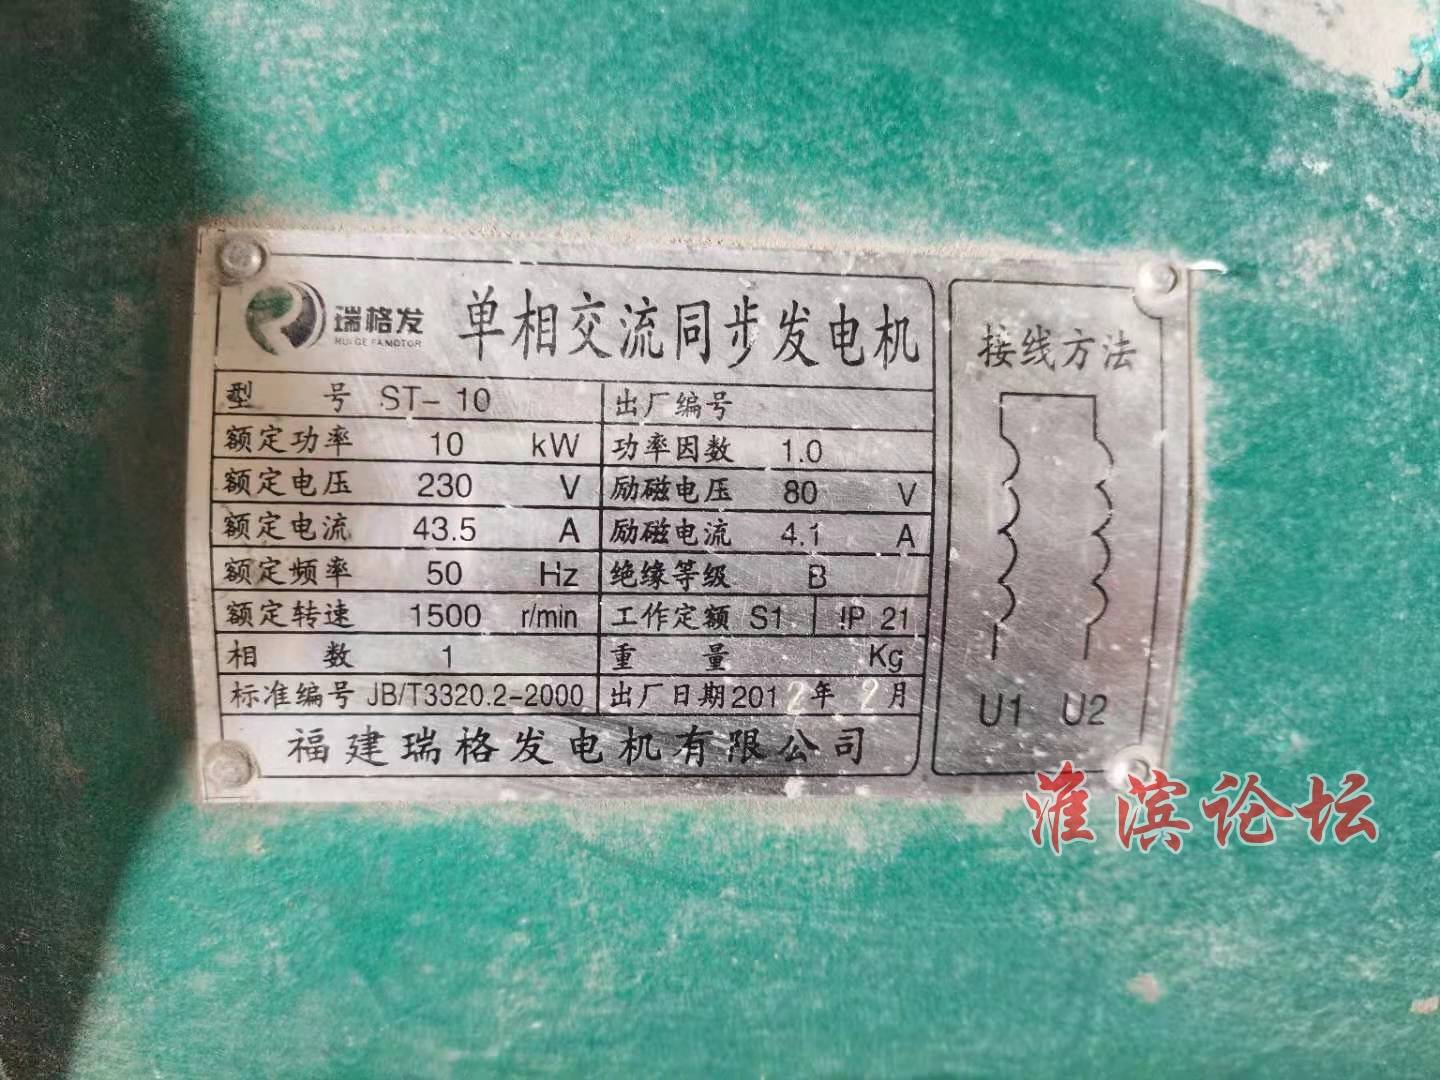 瑞格发 单相交流同步发电机
RUI GE FA MOTOR
型 号 ST-10 出厂编号
额定功率 10 kW 功率因数 1.0
额定电压 230 V 励磁电压 80 V
额定电流 43.5 A 励磁电流 4.1 A
额定频率 50 Hz 绝缘等级 B
额定转速 1500 r/min 工作定额 S1 IP 21
相 数 1 重 量 Kg
标准编号 JB/T3320.2-2000 出厂日期2012年 2月
福建瑞格发电机有限公司
接线方法
U1 U2
淮滨论坛